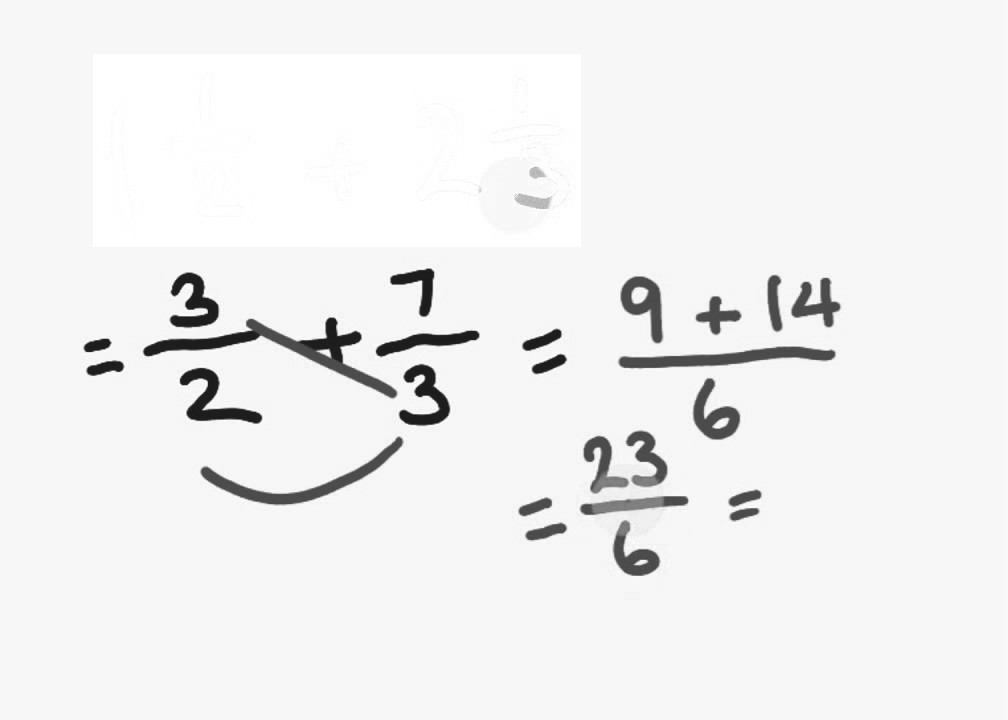 1 1/2 + 2 1/3
= 3/2 + 7/3 = (9 + 14)/6
= 23/6 =